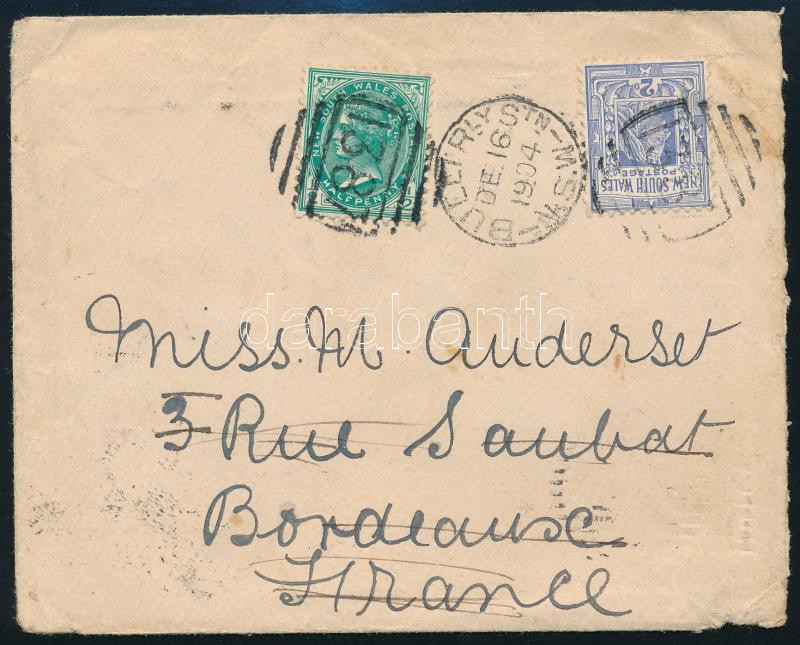 NEW SOUTH WALES POSTAGE
HALFPENNY
1/2
BULLI RLY STN - N.S.W -
DE 16
1904
NEW SOUTH WALES
POSTAGE
2D
darabanth
Miss. M. Anderset
3 Rue Saubat
Bordeaux
France